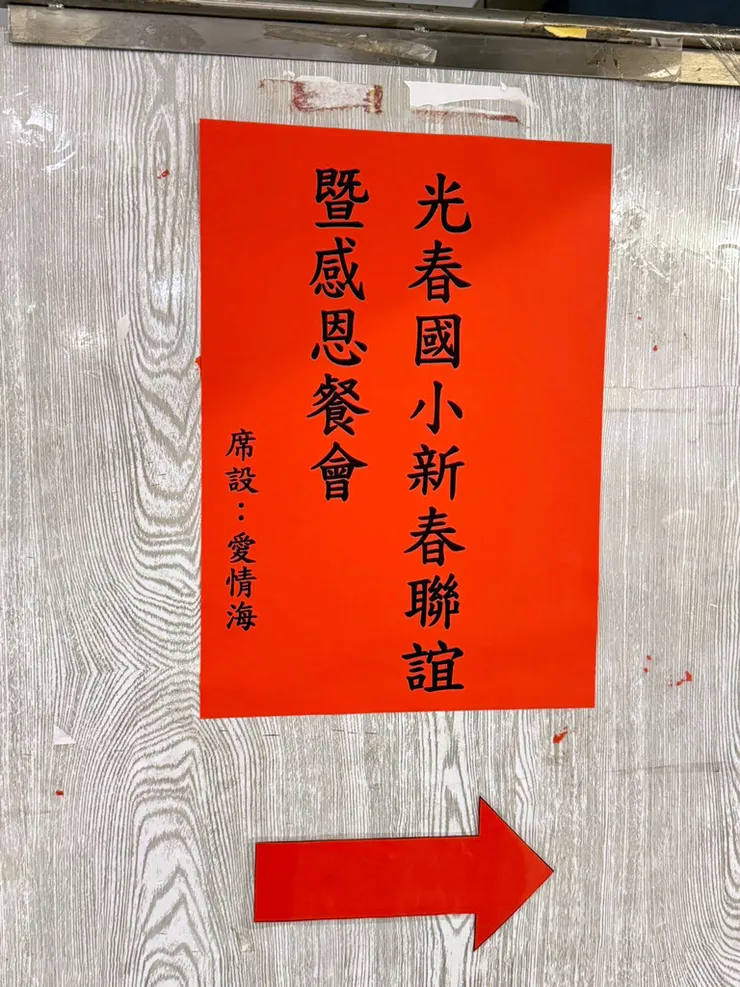 光春國小新春聯誼
暨感恩餐會
席設：愛情海